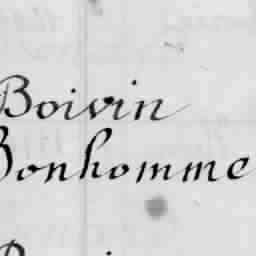 Boivin
Bonhomme